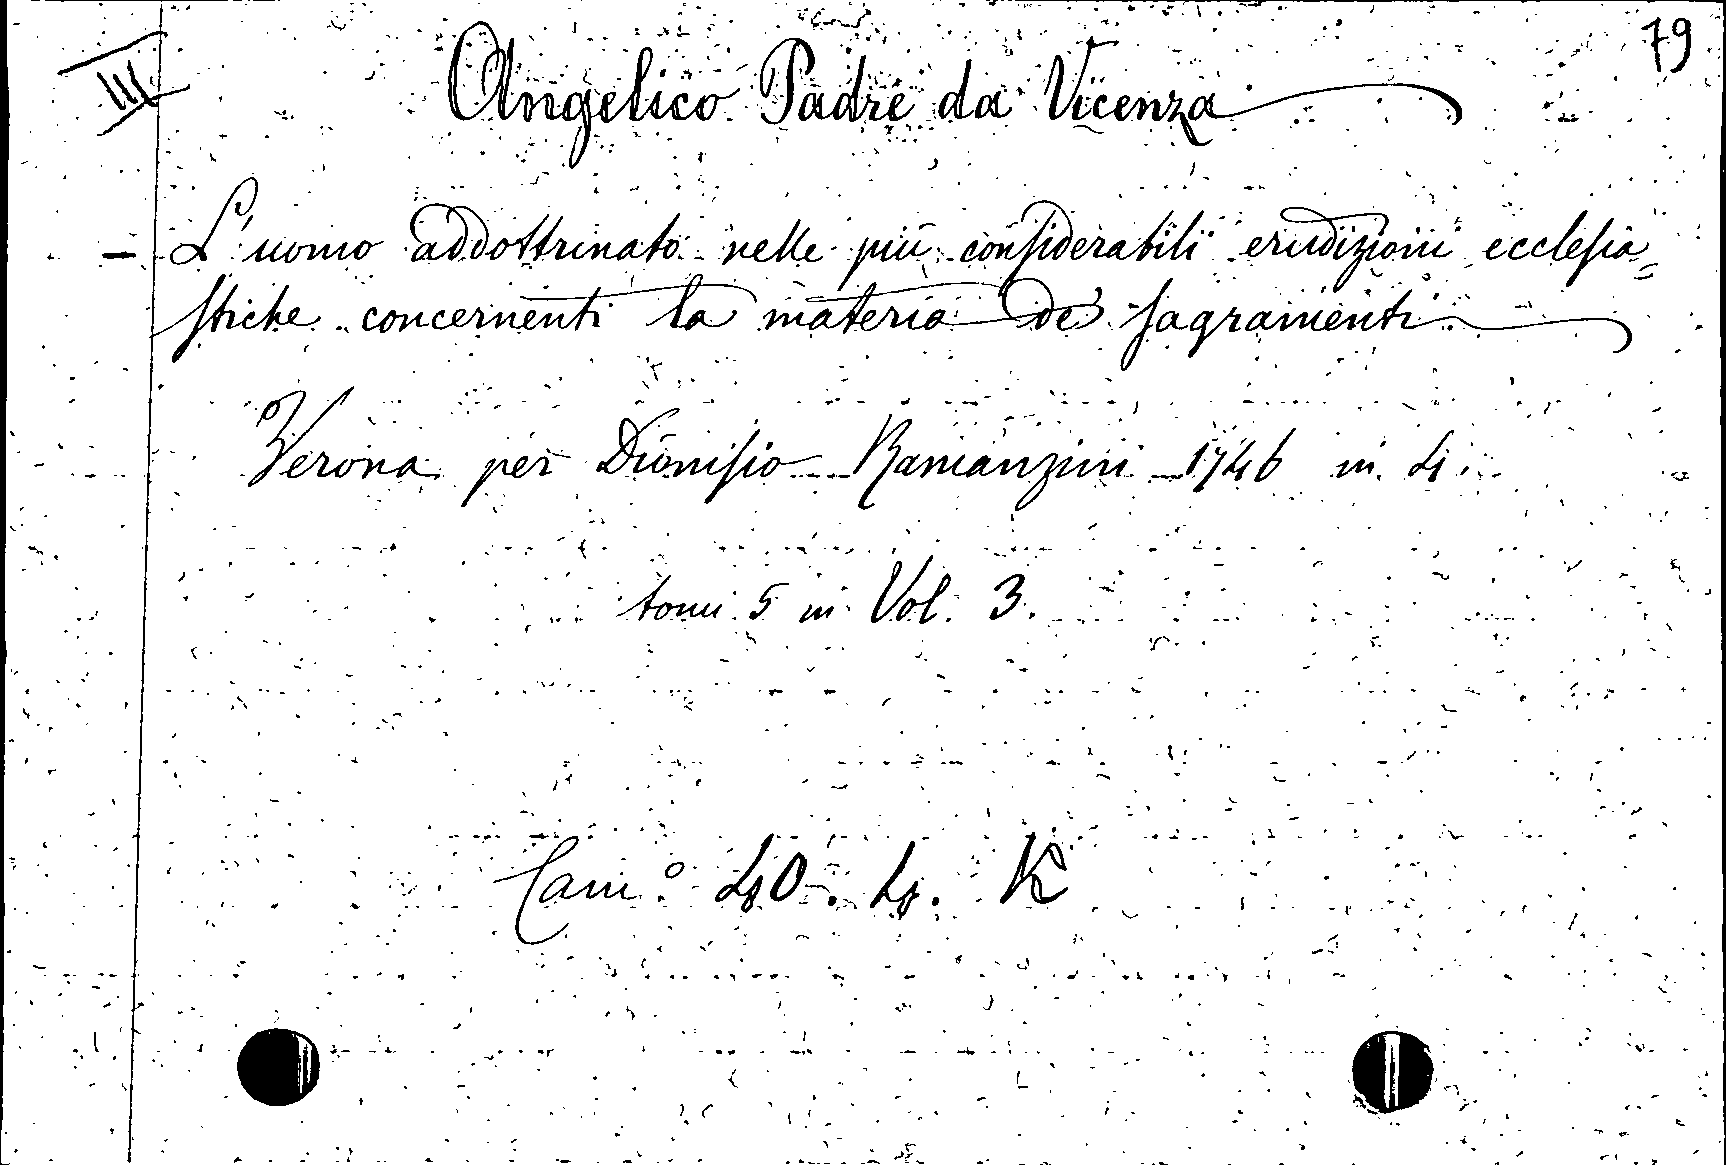 III
79
Angelico Padre da Vicenza
- L'uomo addottrinato nelle più considerabili erudizioni ecclesia=
stiche concernenti la materia de' sagramenti
Verona per Dionisio Ramanzini 1746 in 4.
tomi 5 in Vol. 3.
Cam.º 40. 4. K